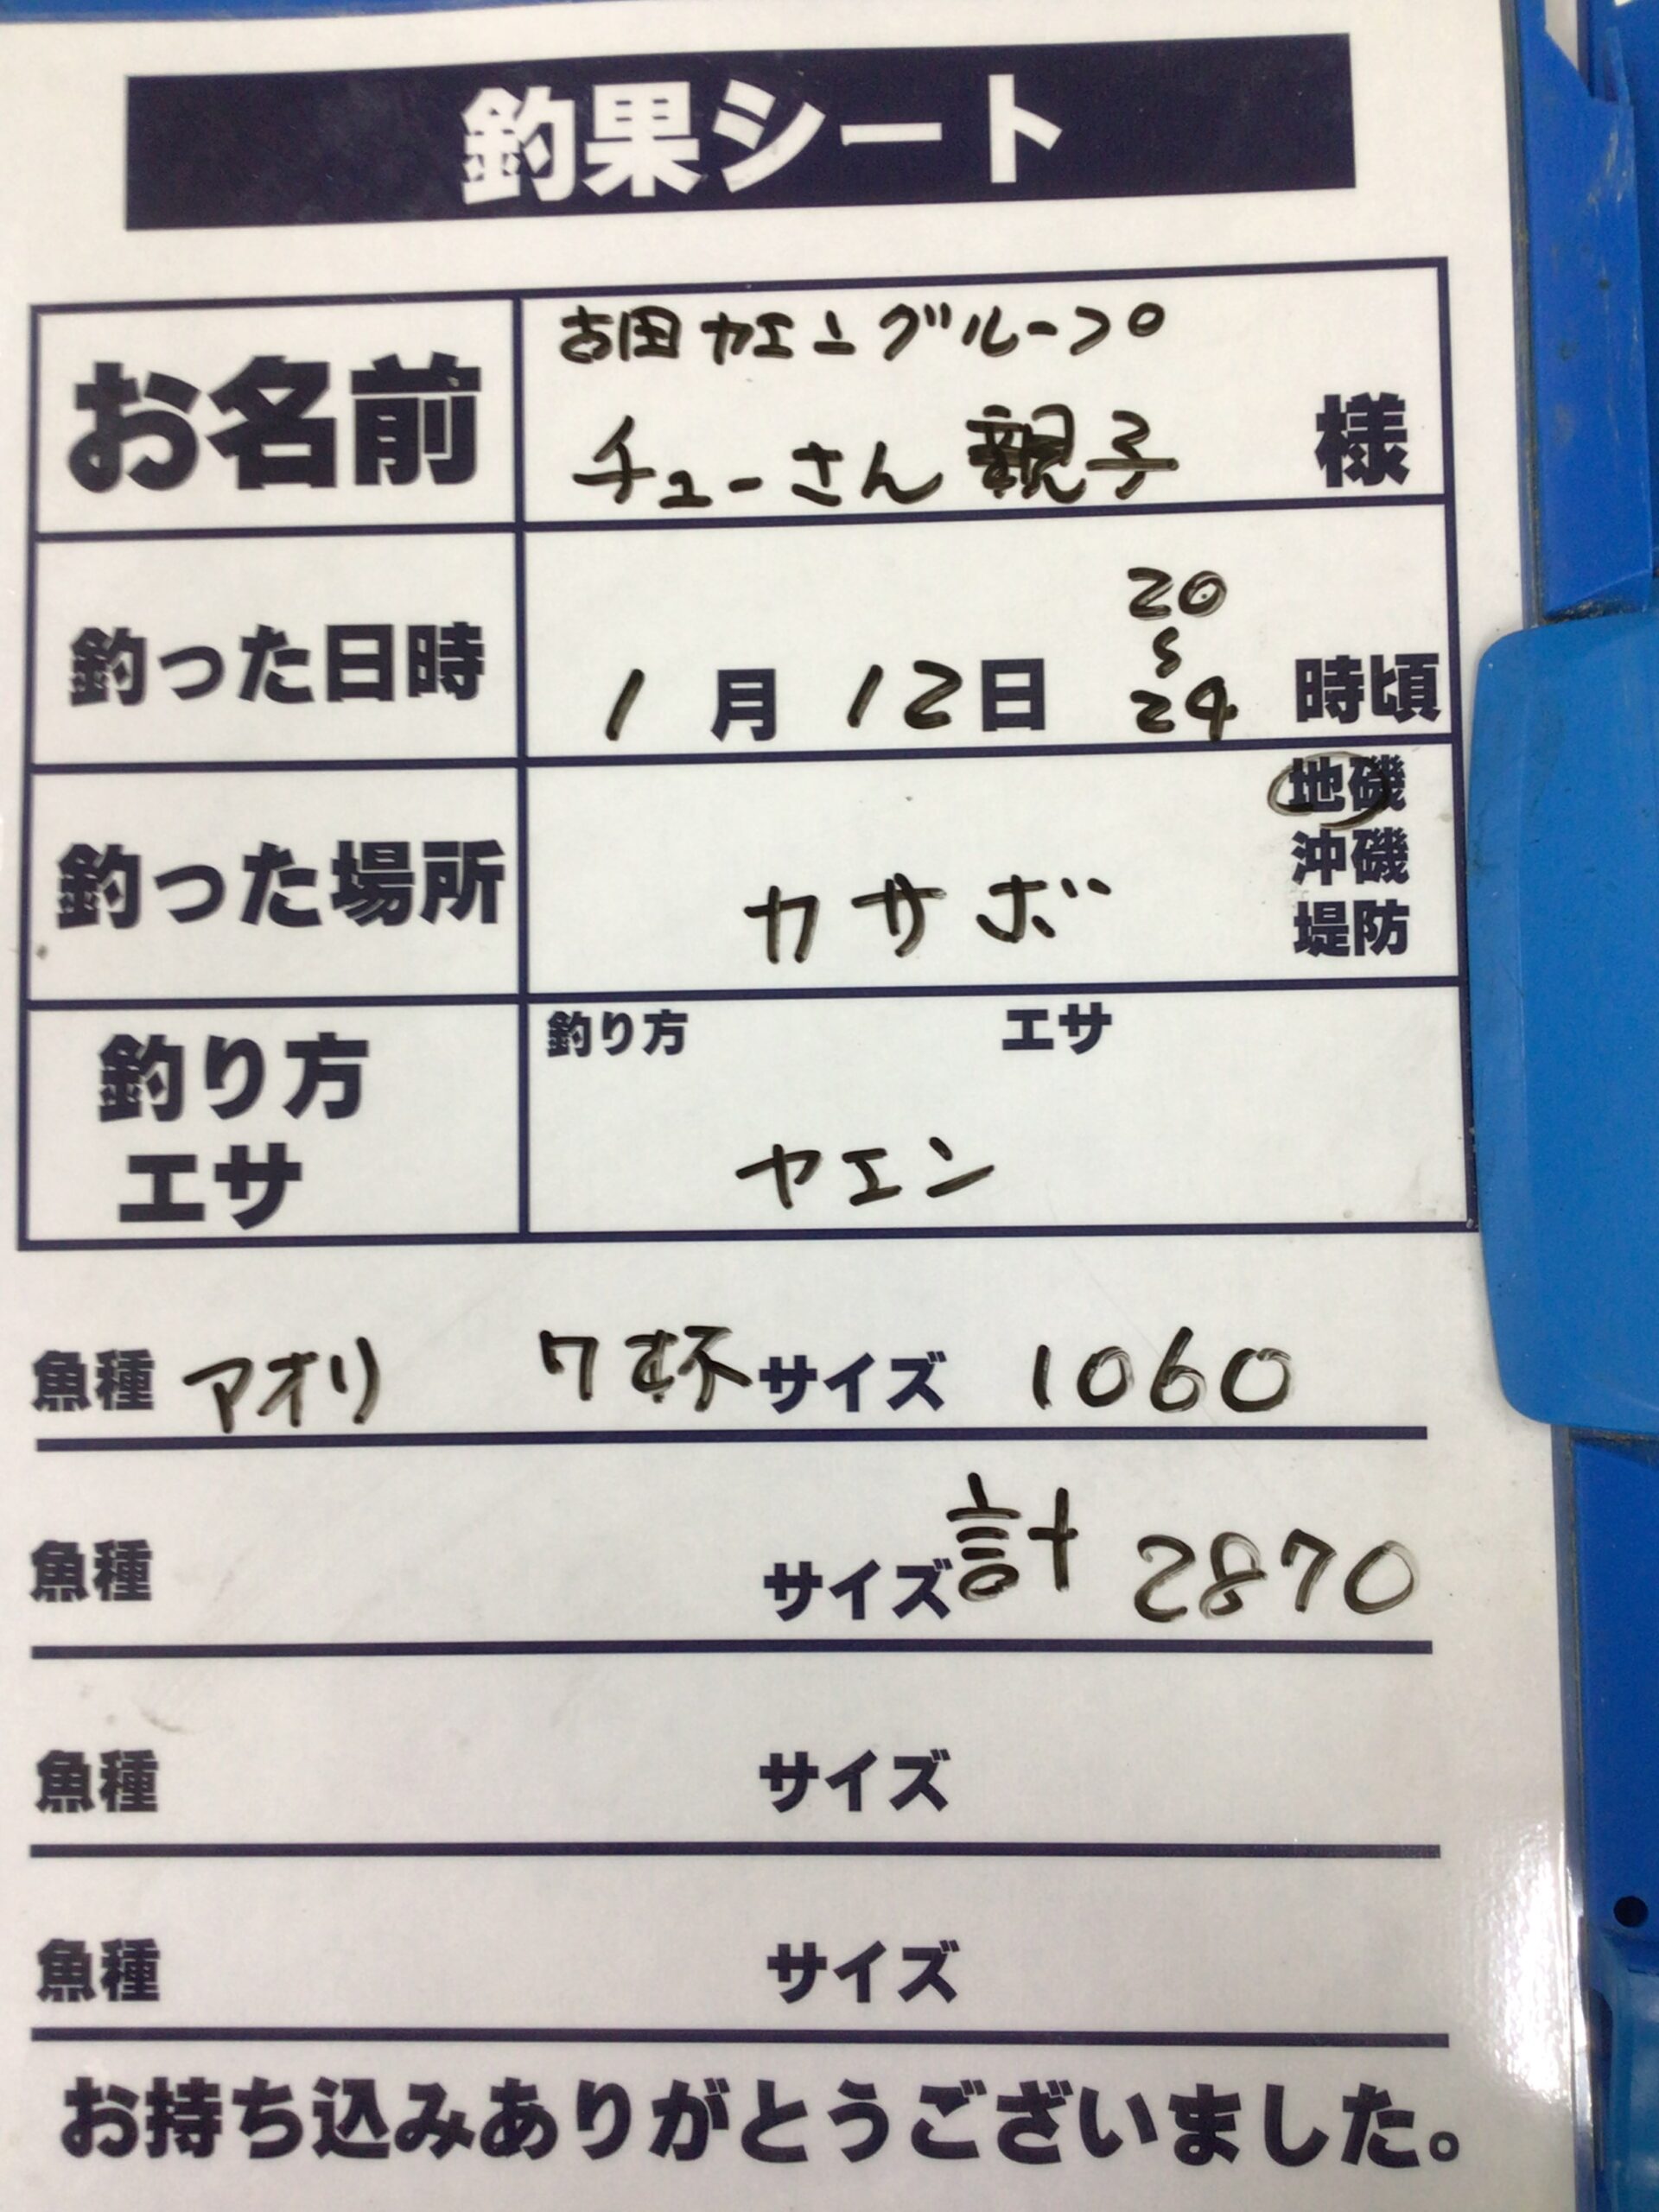 釣果シート
お名前
古田カエングループ
チューさん親子 様
釣った日時
1月12日 20〜24 時頃
釣った場所
カサボ
地磯
沖磯
堤防
釣り方
エサ
釣り方 エサ
ヤエン
魚種 アオリ 7杯 サイズ 1060
魚種 サイズ 計 2870
魚種 サイズ
魚種 サイズ
お持ち込みありがとうございました。